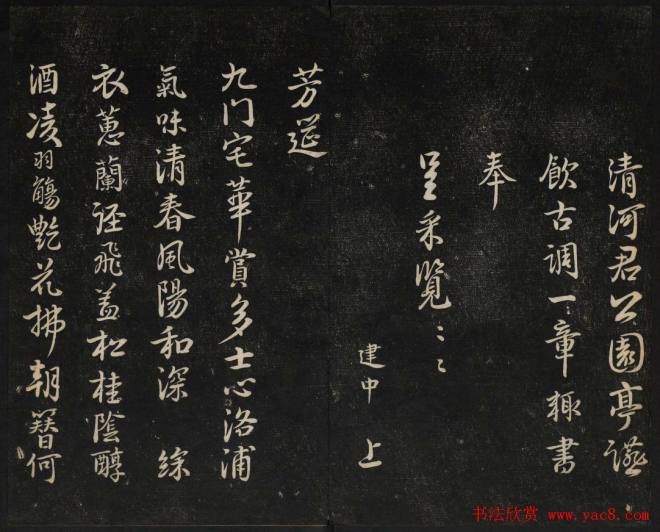 清河君公園亭讌
飲古調一章輒書
奉
呈采覽〻〻
建中 上
芳筵
九门宅華賞多士心洛浦
氣味清春風陽和深 綜
衣蕙蘭迳飛盖松桂陰醇
酒凌羽觴艷花拂朝簪何
书法欣赏 www.yac8.com